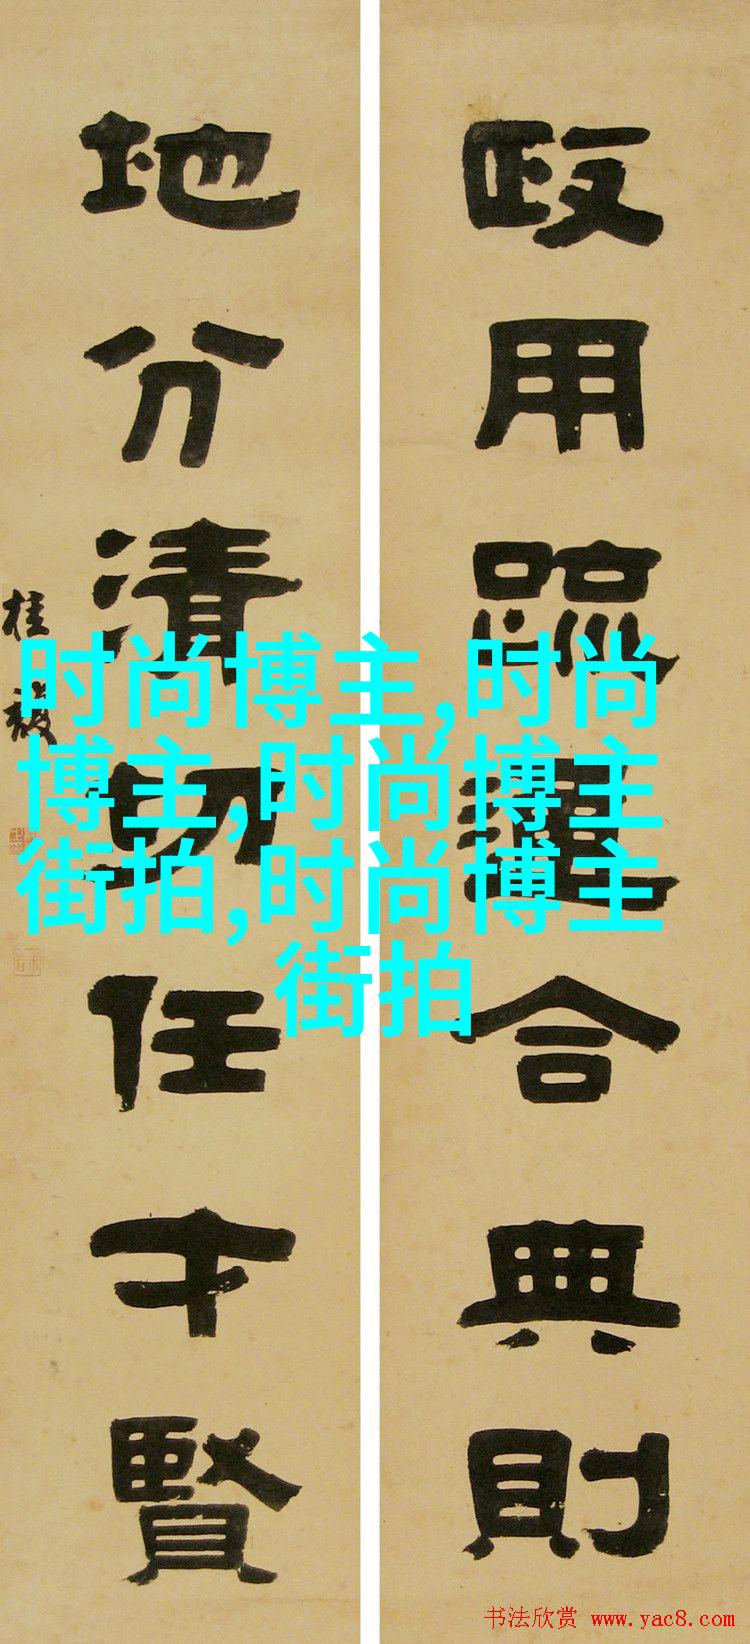 政用疏通合典則
地分清切任才賢
桂馥
时尚博主,时尚
博主,时尚博主
街拍,时尚博主
街拍
书法欣赏 www.yac8.com